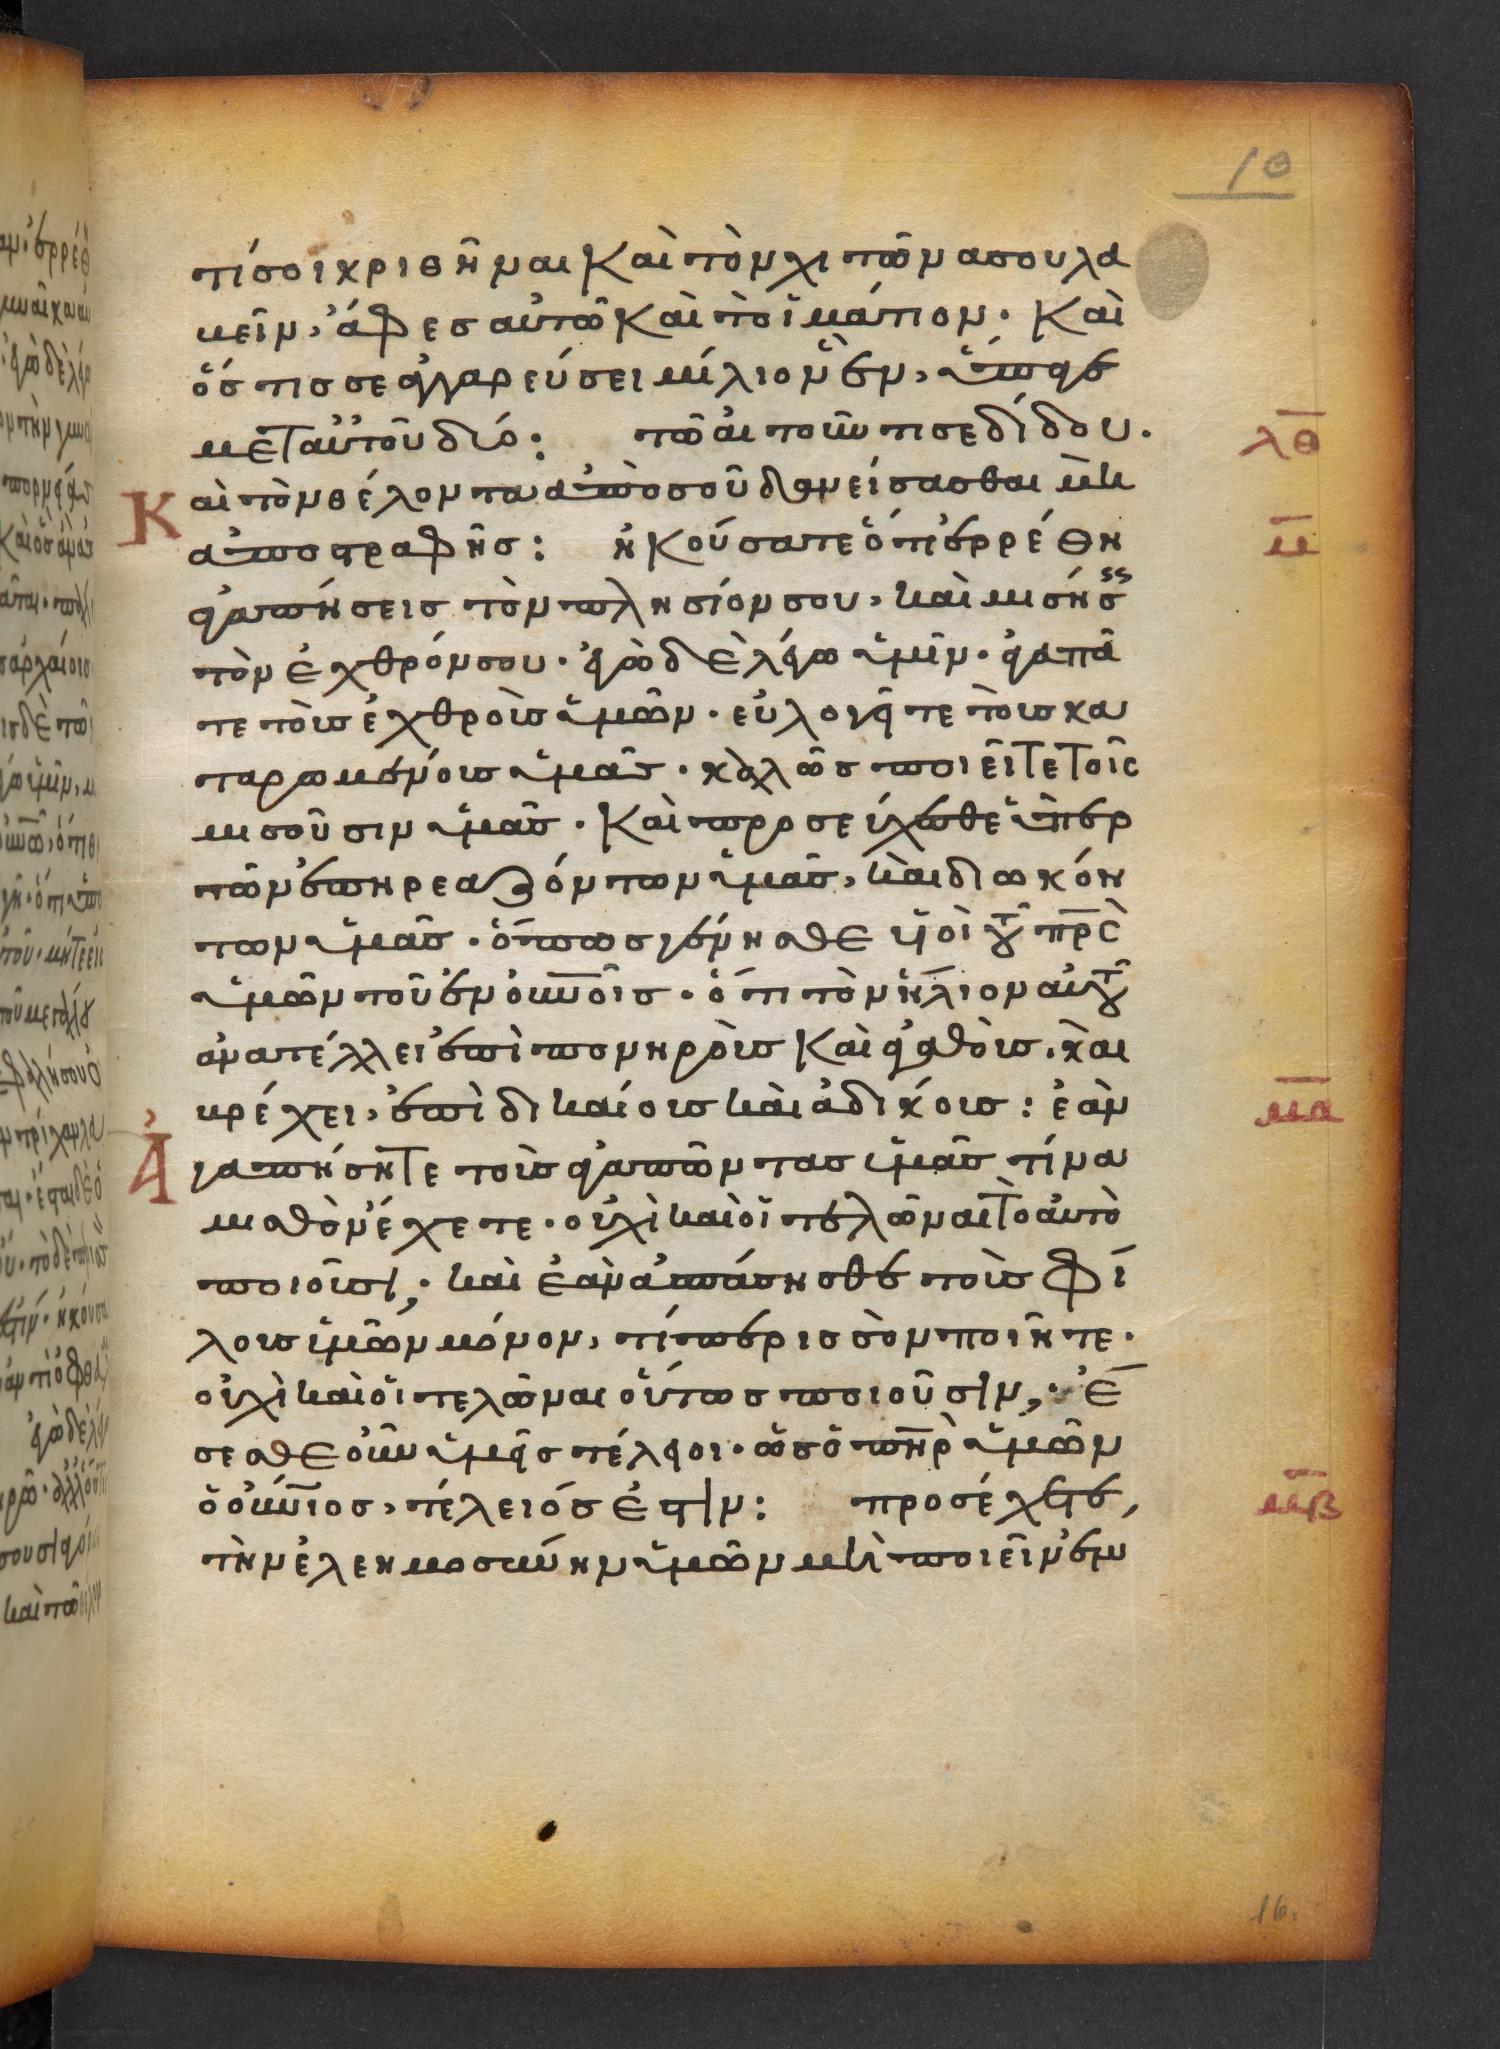 10
τί σοι κριθῆναι καὶ τὸν χιτῶνα σου λα
βεῖν, ἄφες αὐτῶ καὶ τὸ ἱμάτιον. Καὶ
ὅστις σε ἀγγαρεύσει μίλιον ἕν, ὕπαγε
μετ αὐτοῦ δύο: τῶ αἰτοῦντι σε δίδου.
λθ
Καὶ τὸν θέλοντα ἀπὸ σοῦ δανείσασθαι μὴ
ἀποστραφῆς: ἠκούσατε ὅτι ἐρρέθη
μ
ἀγαπήσεις τὸν πλησίον σου, καὶ μισήσ
τὸν ἐχθρόν σου. ἐγὼ δὲ λέγω ὑμῖν. ἀγαπᾶ
τε τοὺς ἐχθροὺς ὑμῶν. εὐλογεῖτε τοὺς κα
ταρωμένους ὑμᾶς. καλῶς ποιεῖτε τοῖς
μισοῦσιν ὑμᾶς. Καὶ προσεύχεσθε ὑπὲρ
τῶν ἐπηρεαζόντων ὑμᾶς, καὶ διωκόν
των ὑμᾶς. ὅπως γένησθε υἱοὶ τοῦ πρς
ὑμῶν τοῦ ἐν οὐνοῖς. ὅτι τὸν ἥλιον αὐτοῦ
ἀνατέλλει ἐπὶ πονηροὺς καὶ ἀγαθοὺς. καὶ
βρέχει, ἐπὶ δικαίους καὶ ἀδίκους: ἐὰν
μα
Ἀγαπήσητε τοὺς ἀγαπῶντας ὑμᾶς τίνα
μισθὸν ἔχετε. οὐχὶ καὶ οἱ τελῶναι τὸ αὐτὸ
ποιοῦσι, . καὶ ἐὰν ἀσπάσησθε τοὺς φί
λους ὑμῶν μόνον, τί περισσὸν ποιῆτε.
οὐχὶ καὶ οἱ τελῶναι οὕτως ποιοῦσιν, . Ἔ
σεσθε οὖν ὑμεῖς τέλειοι. ὡς ὁ πηρ ὑμῶν
ὁ οὐνιος, τέλειός ἐστιν: προσέχετε,
μβ
τὴν ἐλεημοσύνην ὑμῶν μὴ ποιεῖν ἐμ
16.